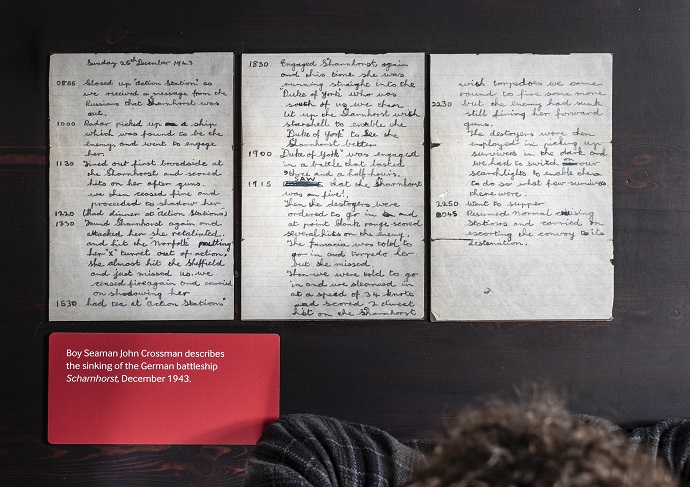 Sunday 26th December 1943
0855 Closed up "Action Station" as
we received a message from the
Russians that Sharnhorst was
out.
1000 Radar picked up a ship
which was found to be the
enemy, and went to engage
her.
1130 Fired our first broadside at
the Sharnhorst and scored
hits on her after guns.
We then ceased fire and
proceeded to shadow her
1220 (Had dinner at Action Stations)
1230 Found Sharnhorst again and
attacked her she retaliated
and hit the Norfolk putting
her "X" turret out of action,
she almost hit the Sheffield
and just missed us. We
ceased fire again and carried
on shadowing her
1530 had tea at "Action Stations"
1830 Engaged Sharnhorst again
and this time she was
running straight into the
"Duke of York" who was
south of us we then
lit up the Sharnhorst with
starshell to enable the
Duke of York to see the
Sharnhorst better
1900 Duke of York" was engaged
in a battle that lasted
three and a half hours.
1915 SAW that the Sharnhorst
was on fire!,
Then the destoyers were
ordered to go in and
at point blank range scored
several hits on the enemy.
The Jamacia was told to
go in and torpedo her
but she missed.
Then we were told to go
in and we steamed in
at a speed of 34 knots
and scored 2 direct
hit on the Sharnhorst
with torpedoes we came
round to fire some more
2230 but the enemy had sunk
still firing her forward
guns.
The destoyers were then
employed in picking up
survivers in the dark and
we had to switch our
searchlights to enable them
to do so what few survives
there were.
2250 Went to supper
Resumed normal cruising
Stations and carried on
escorting the convoy to its
destenation.
2
Boy Seaman John Crossman describes
the sinking of the German battleship
Scharnhorst, December 1943.